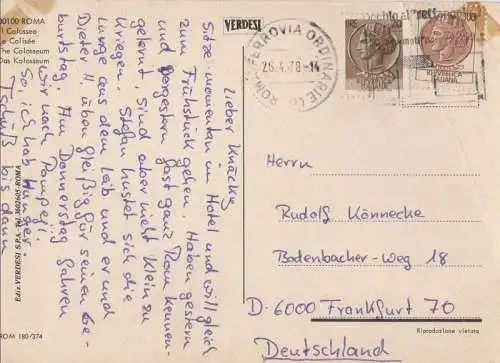 00100 ROMA
Il Colosseo
Le Colisée
The Colosseum
Das Kolosseum
VERDESI
ROMA FERROVIA ORDINARIE
26.4.78-14
Lieber Knucky
Sitze momentan im Hotel und will gleich
zum Frühstück gehen. Haben gestern
und vorgestern fast ganz Rom kennen-
gelernt, sind aber nicht klein zu
kriegen. Stefan hustet sich die
Lunge aus dem Leib und er und
Dieter II üben fleißig für seinen Ge-
burtstag. Am Donnerstag fahren
wir nach Pompej.
So, ich hab Hunger
Tschüß bis dann
Herrn
Rudolf Könnecke
Bodenbacher-Weg 18
D-6000 Frankfurt 70
Deutschland
ROM 180/374
Riproduzione vietata